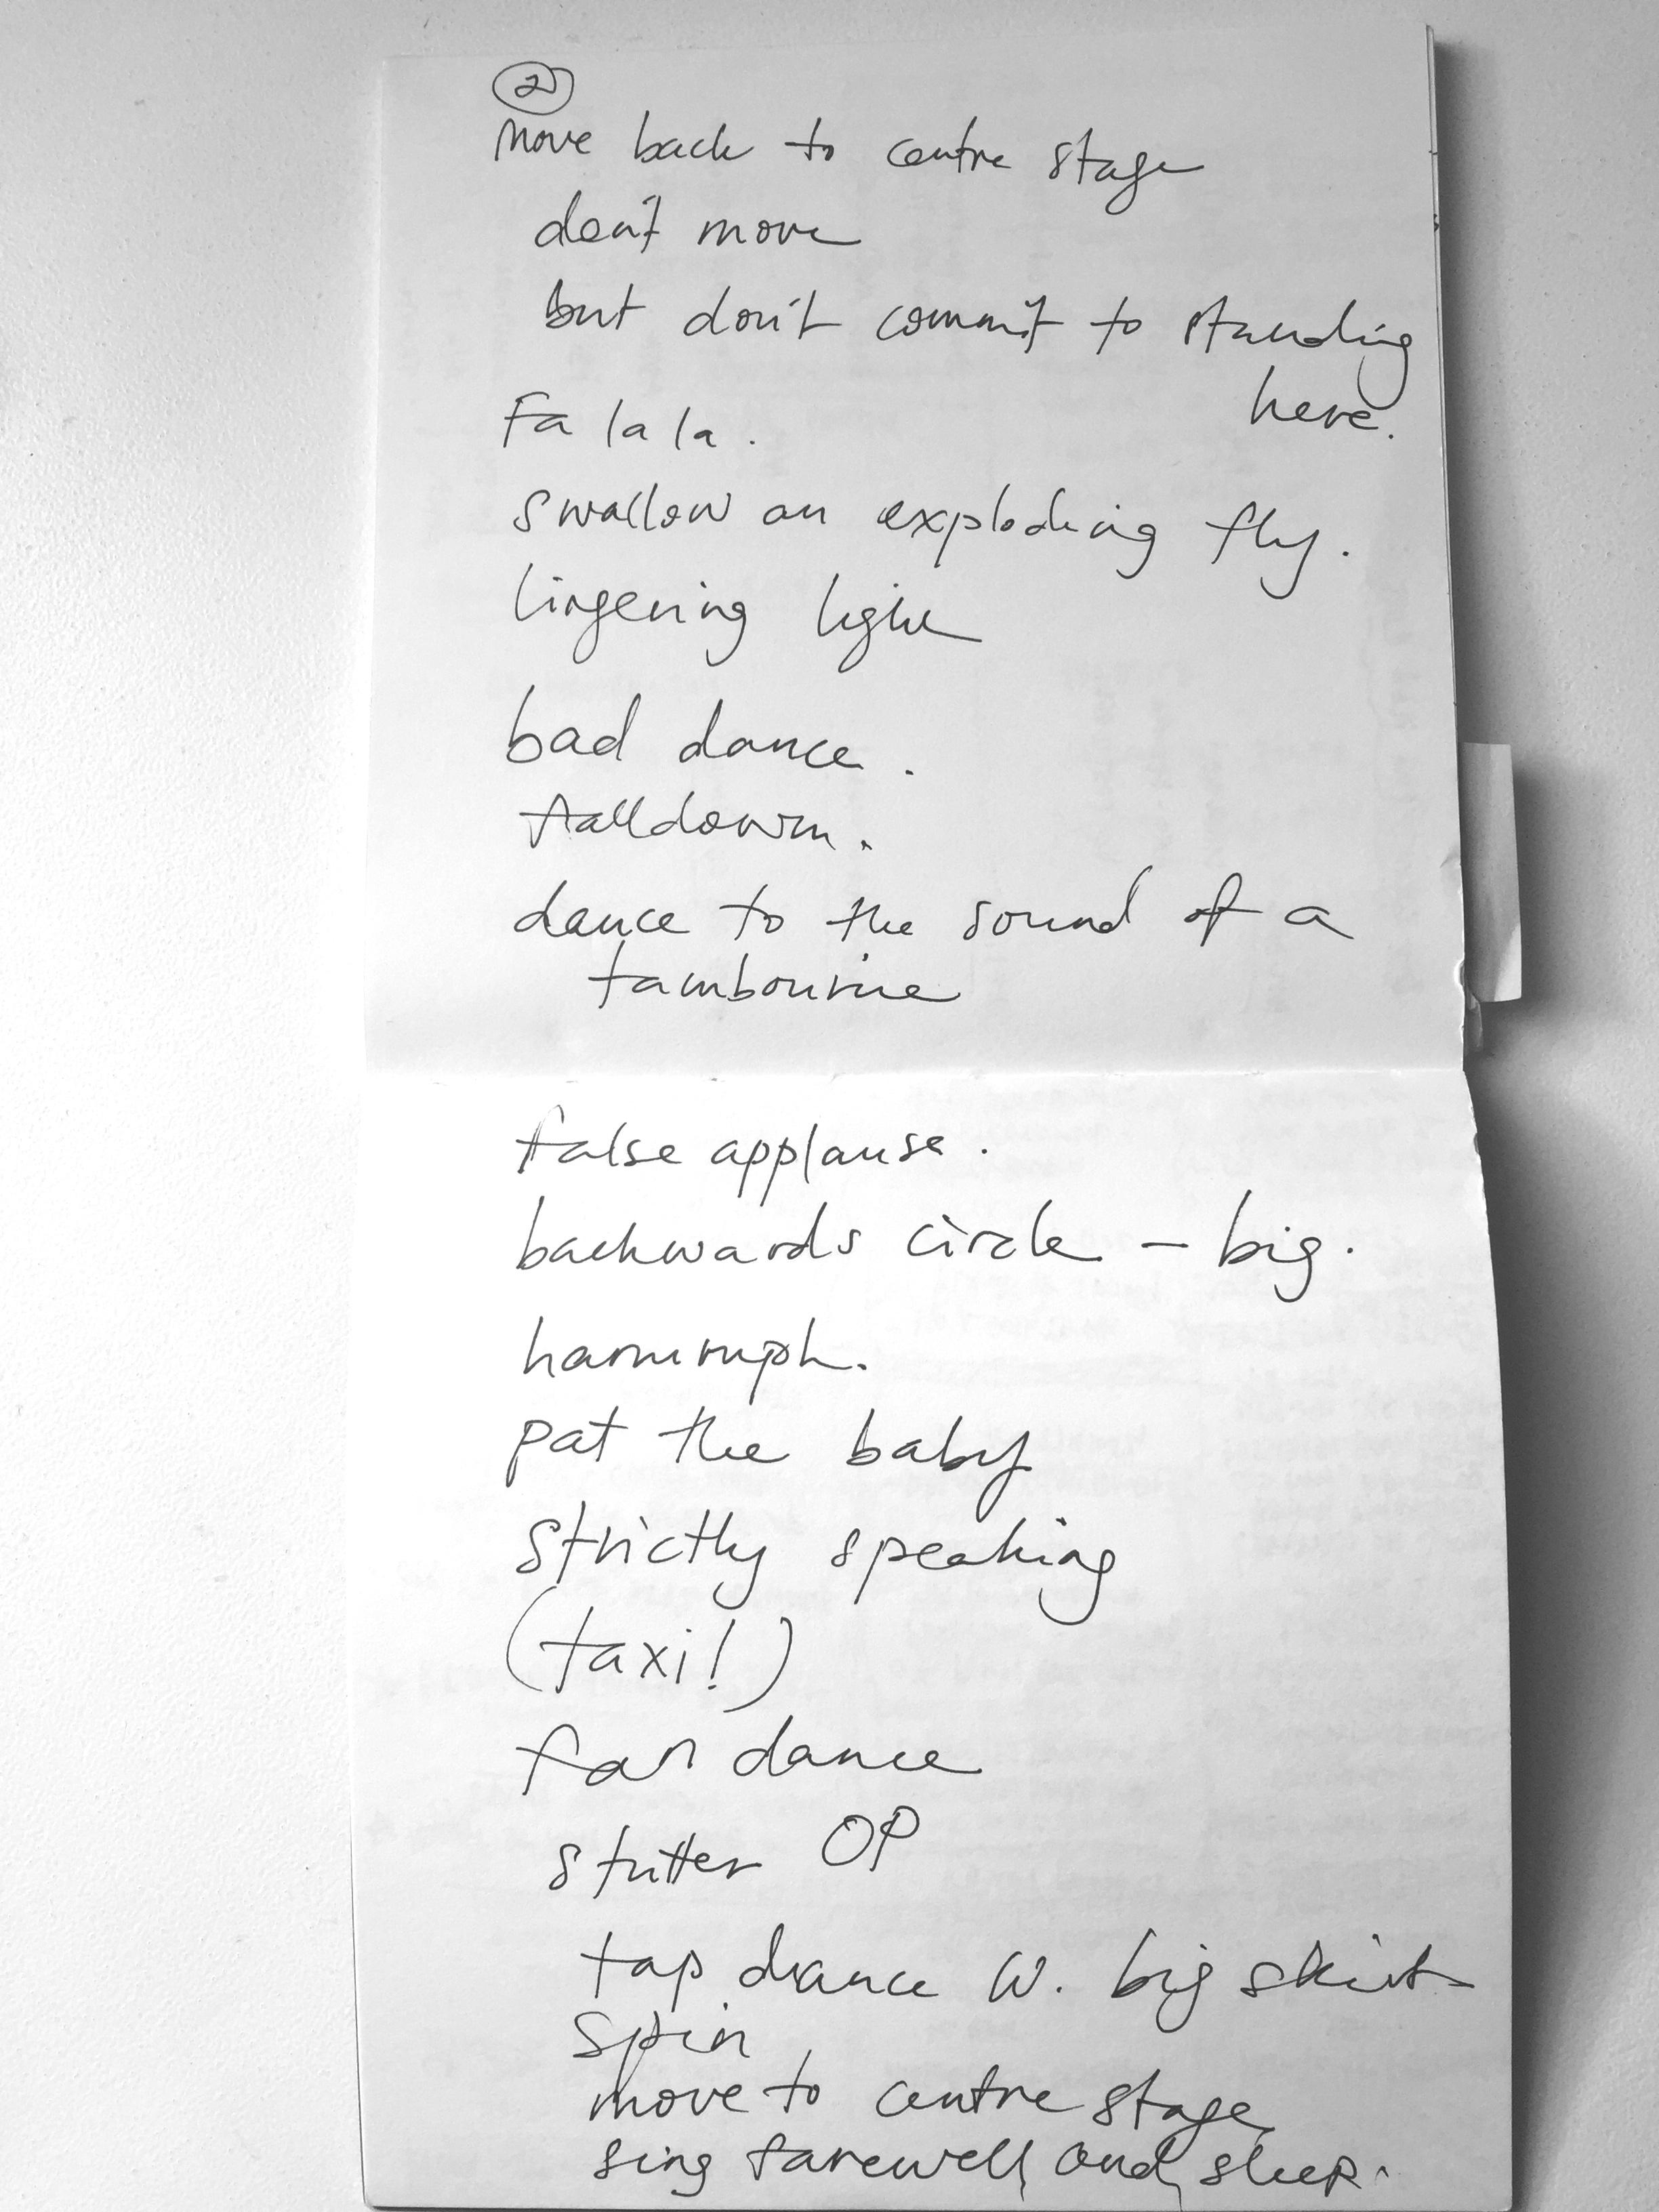 2
move back to centre stage
don't move
but don't commit to standing
here.
Fa la la.
swallow an exploding fly.
lingering light
bad dance.
falldown.
dance to the sound of a
tambourine
false applause.
backwards circle – big.
harrumph.
pat the baby
strictly speaking
(taxi!)
fan dance
stutter OP
tap dance w. big skirt
spin
move to centre stage
sing farewell, and, sleep.